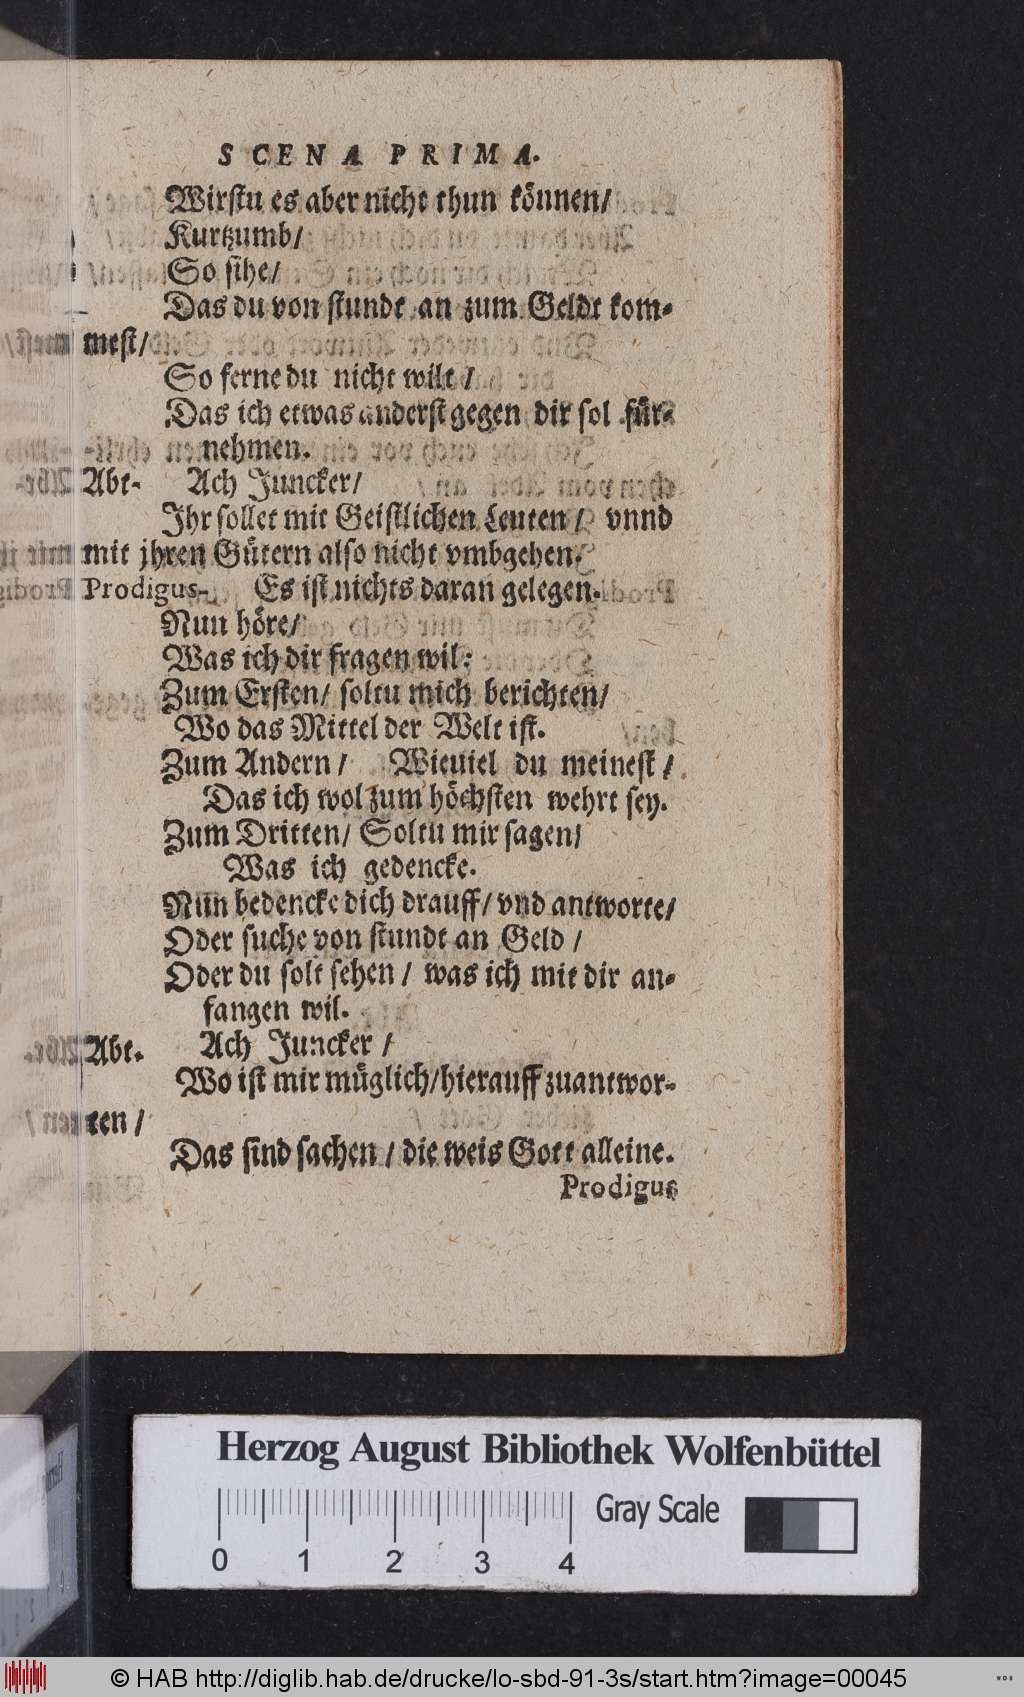 SCENA PRIMA.
Wirstu es aber nicht thun können/
Kurtzumb/
So sihe/
Das du von stundt an zum Geldt kom-
mest/
So ferne du nicht wilt /
Das ich etwas anderst gegen dir sol für-
nehmen.
Abt. Ach Juncker/
Ihr sollet mit Geistlichen Leuten / vnnd
mit jhren Gütern also nicht vmbgehen.
Prodigus. Es ist nichts daran gelegen.
Nun höre/
Was ich dir fragen wil:
Zum Ersten/ soltu mich berichten/
Wo das Mittel der Welt ist.
Zum Andern / Wieuiel du meinest /
Das ich wol zum höchsten wehrt sey.
Zum Dritten/ Soltu mir sagen/
Was ich gedencke.
Nun bedencke dich drauff/ vnd antworte/
Oder suche von stundt an Geld /
Oder du solt sehen / was ich mit dir an-
fangen wil.
Abt. Ach Juncker /
Wo ist mir müglich/hierauff zuantwor-
ten /
Das sind sachen / die weis Gott alleine.
Prodigus
Herzog August Bibliothek Wolfenbüttel
0 1 2 3 4
Gray Scale
© HAB http://diglib.hab.de/drucke/lo-sbd-91-3s/start.htm?image=00045